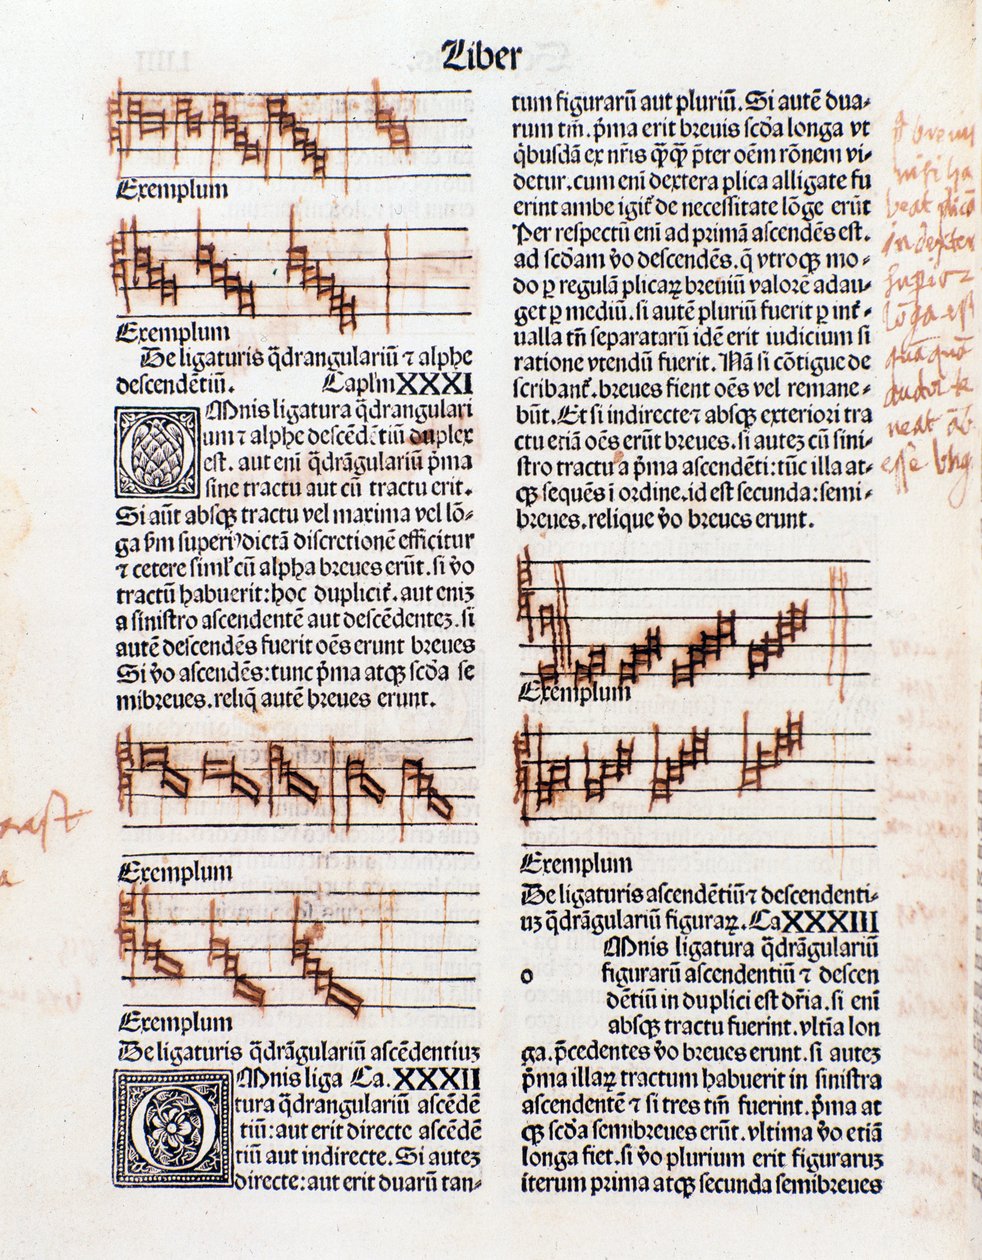 Liber
Exemplum
Exemplum
De ligaturis q̄drangulariū ⁊ alphe
descendētiū. Capl'm XXXI
OMnis ligatura q̄drangulari
um ⁊ alphe descēdētiū duplex
est. aut eni q̄drāgulariū p̄ma
sine tractu aut cū tractu erit.
Si aūt absqꝫ tractu vel maxima vel lō-
ga ẜm superi⁹ dictā discretionē efficitur
⁊ cetere simlʼr cū alpha breues erūt. si v̊o
tractū habuerit: hoc duplicit᷑. aut eniꝫ
a sinistro ascendentē aut descēdenteꝫ. si
autē descendēs fuerit oēs erunt breues
Si v̊o ascendēs: tunc p̄ma atqꝫ scd̄a se
mibreues. reliq̄ autē breues erunt.
Exemplum
Exemplum
De ligaturis q̄drāgulariū ascēdentiuꝫ
OMnis liga Ca. XXXII
tura q̄drangulariū ascēdē
tiū: aut erit directe ascēdē
tiū aut indirecte. Si auteꝫ
directe: aut erit duarū tan-
tum figurarū aut pluriū. Si autē dua-
rum tm̄. p̄ma erit breuis scd̄a longa vt
q̇busdā ex nr̄is q̄ꝙ p̄ter oēm rōnem vi-
detur. cum eni dextera plica alligate fu
erint ambe igit᷑ de necessitate lōge erūt
Per respectū eni ad primā ascendēs est.
ad scd̄am v̊o descendēs. q̄ vtroqꝫ mo-
do ꝑ regulā plicaꝝ breuiū valorē adau-
get ꝑ mediū. si autē pluriū fuerit ꝑ int᷑-
ualla tn̄ separatarū idē erit iudicium si
ratione vtendū fuerit. Nā si cōtigue de
scribant᷑. breues fient oēs vel remane-
būt. Et si indirecte ⁊ absqꝫ exteriori tra
ctu etiā oēs erūt breues. si auteꝫ cū sini-
stro tractu a p̄ma ascendēti: tūc illa at-
qꝫ sequēs ī ordine. id est secunda: semi-
breues. relique v̊o breues erunt.
Exemplum
Exemplum
De ligaturis ascendētiū ⁊ descendenti-
uꝫ q̄drāgulariū figuraꝝ. Ca XXXIII
OMnis ligatura q̄drāgulariū
figurarū ascendentiū ⁊ descen
dētiū in duplici est dr̄ia. si eni
absqꝫ tractu fuerint. vltīa lon
ga. p̄cedentes v̊o breues erunt. si auteꝫ
p̄ma illaꝝ tractum habuerit in sinistra
ascendentē ⁊ si tres tm̄ fuerint. p̄ma at
qꝫ scd̄a semibreues erūt. vltima v̊o etiā
longa fiet. si v̊o plurium erit figuraruꝫ
iterum prima atqꝫ secunda semibreues